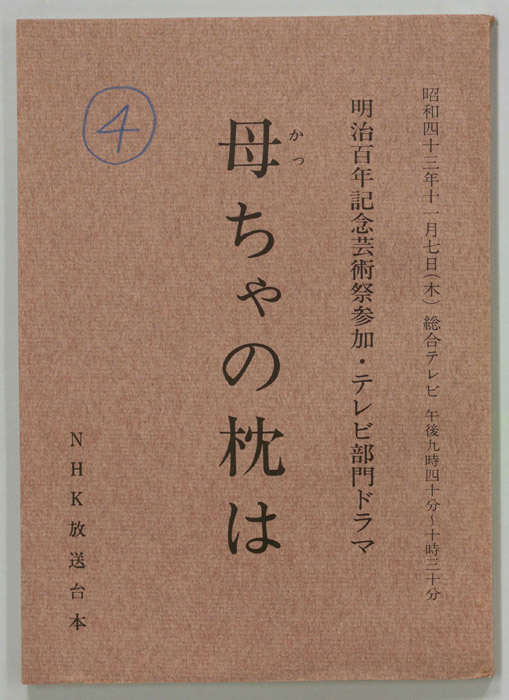 昭和四十三年十一月七日(木) 総合テレビ 午後九時四十分~十時三十分
明治百年記念芸術祭参加・テレビ部門ドラマ
母ちゃの枕は
かっ
NHK放送台本
4